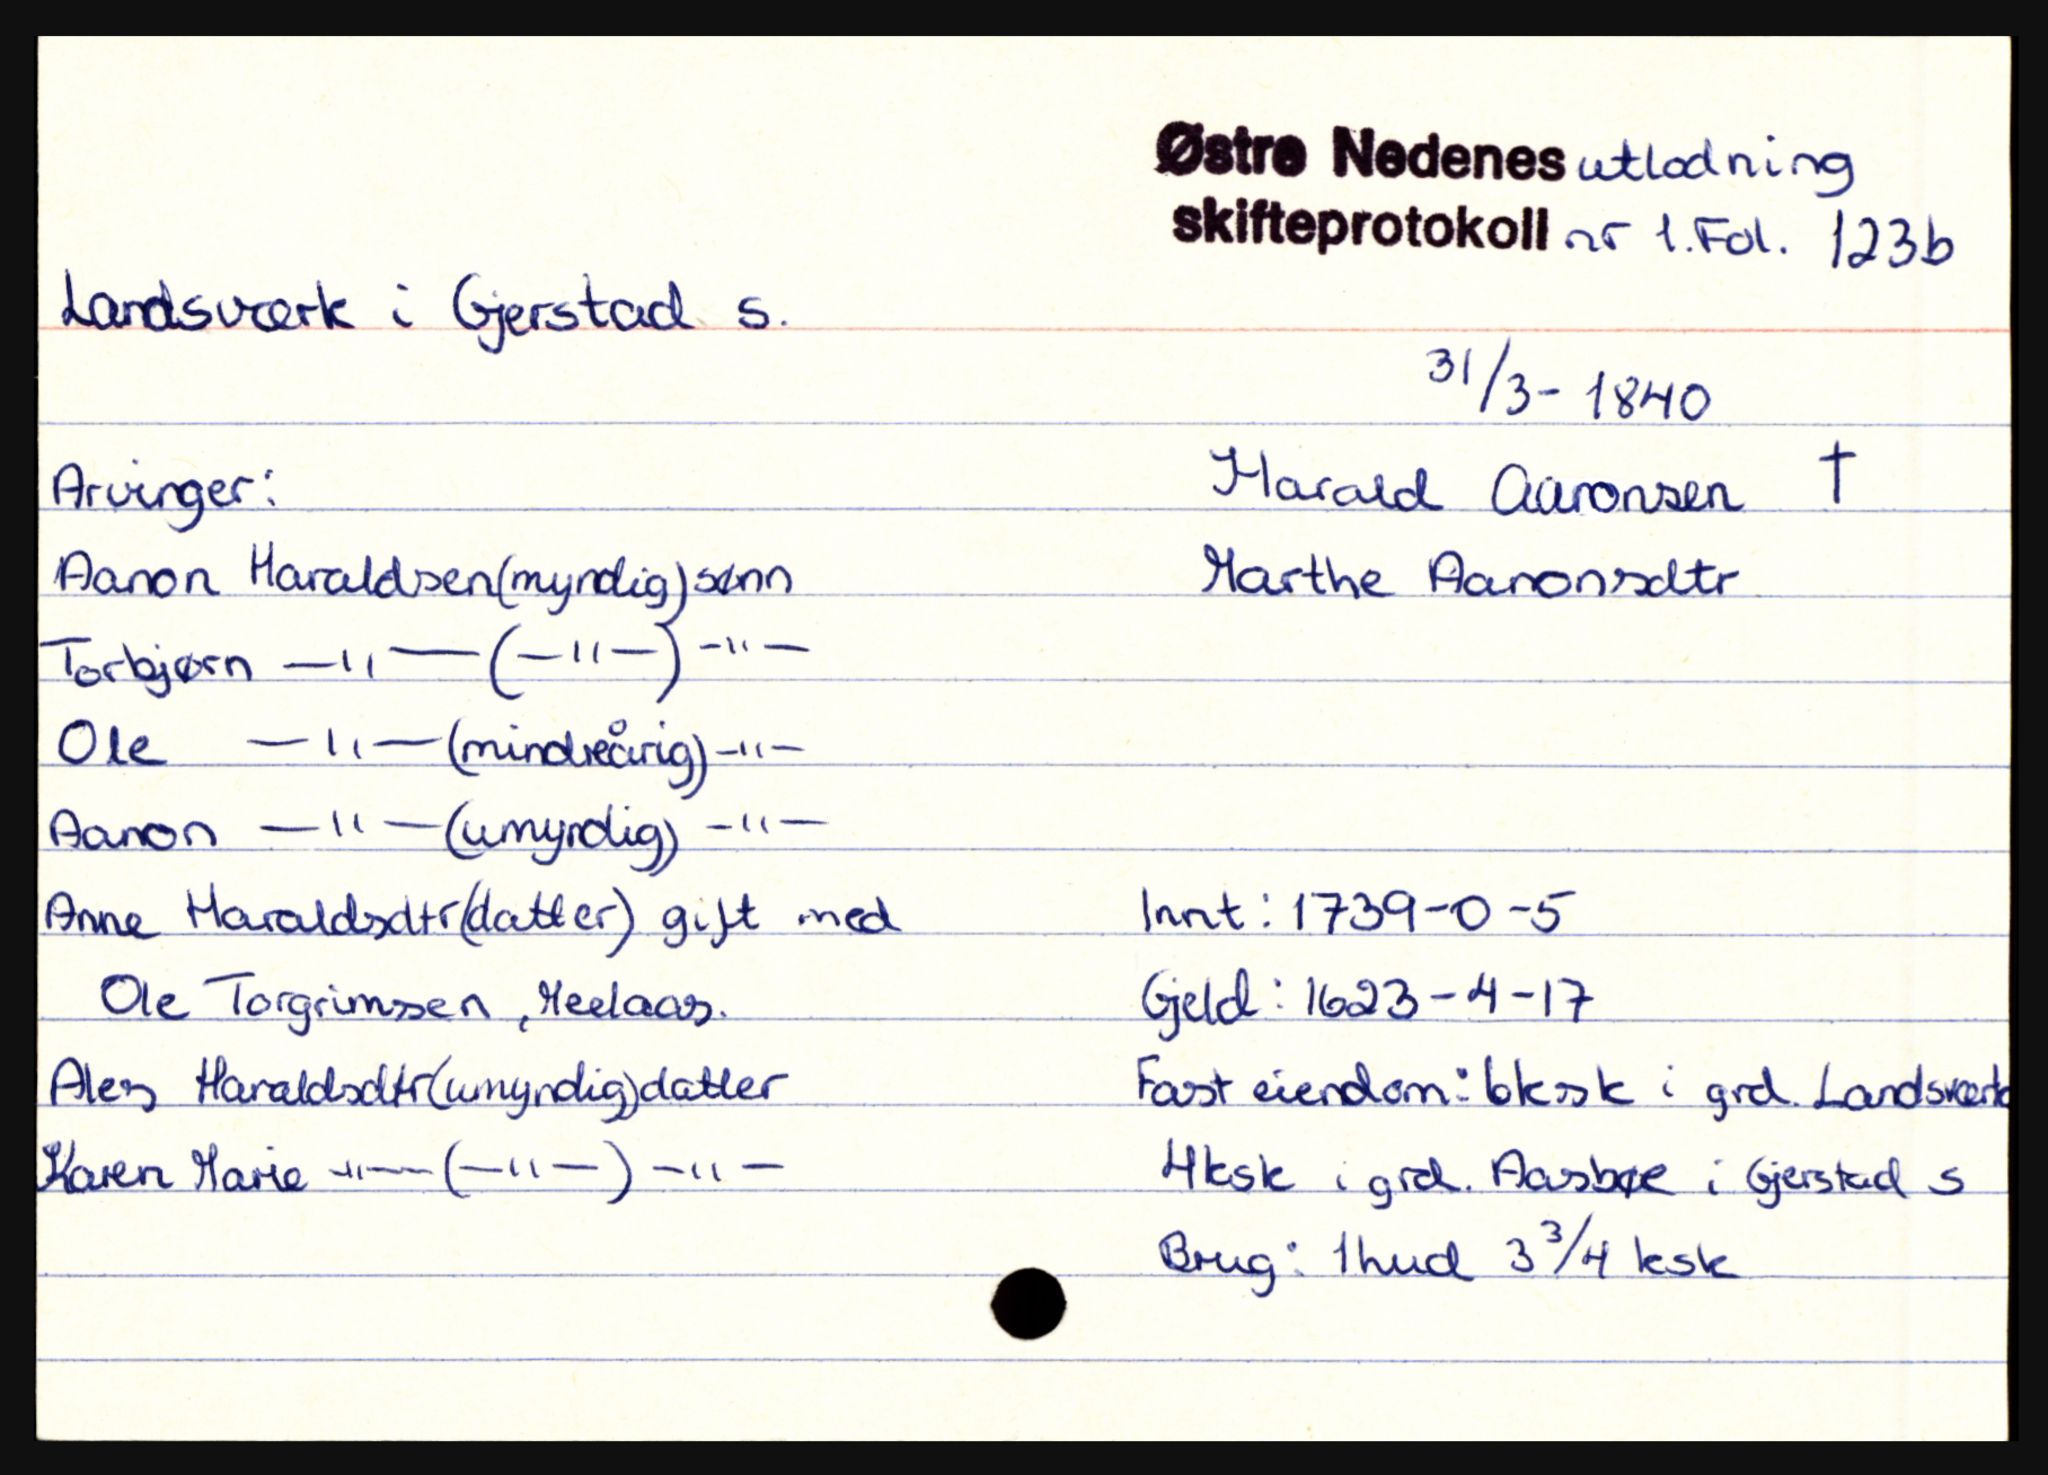 Østre Nedenes utlodning
skifteprotokoll nr 1. Fol. 123b
Landsværk i Gjerstad s.
31/3- 1840
Arvinger:
Harald Aaronsen †
Aanon Haraldsen (myndig) sønn
Marthe Aanonsdtr
Torbjørn —"— (—"—) —"—
Ole —"— (mindreårig) —"—
Aanon —"— (umyndig) —"—
Anne Haraldsdtr (datter) gift med
Innt: 1739-0-5
Ole Torgrimssen, Meelaas.
Gjeld: 1623-4-17
Ales Haraldsdtr (umyndig) datter
Fast eiendom: 6kssk i grd. Landsværk
Karen Marie —"— (—"—) —"—
4ksk i grd. Aasbøe i Gjerstad s
Brug: 1hud 3 3/4 ksk